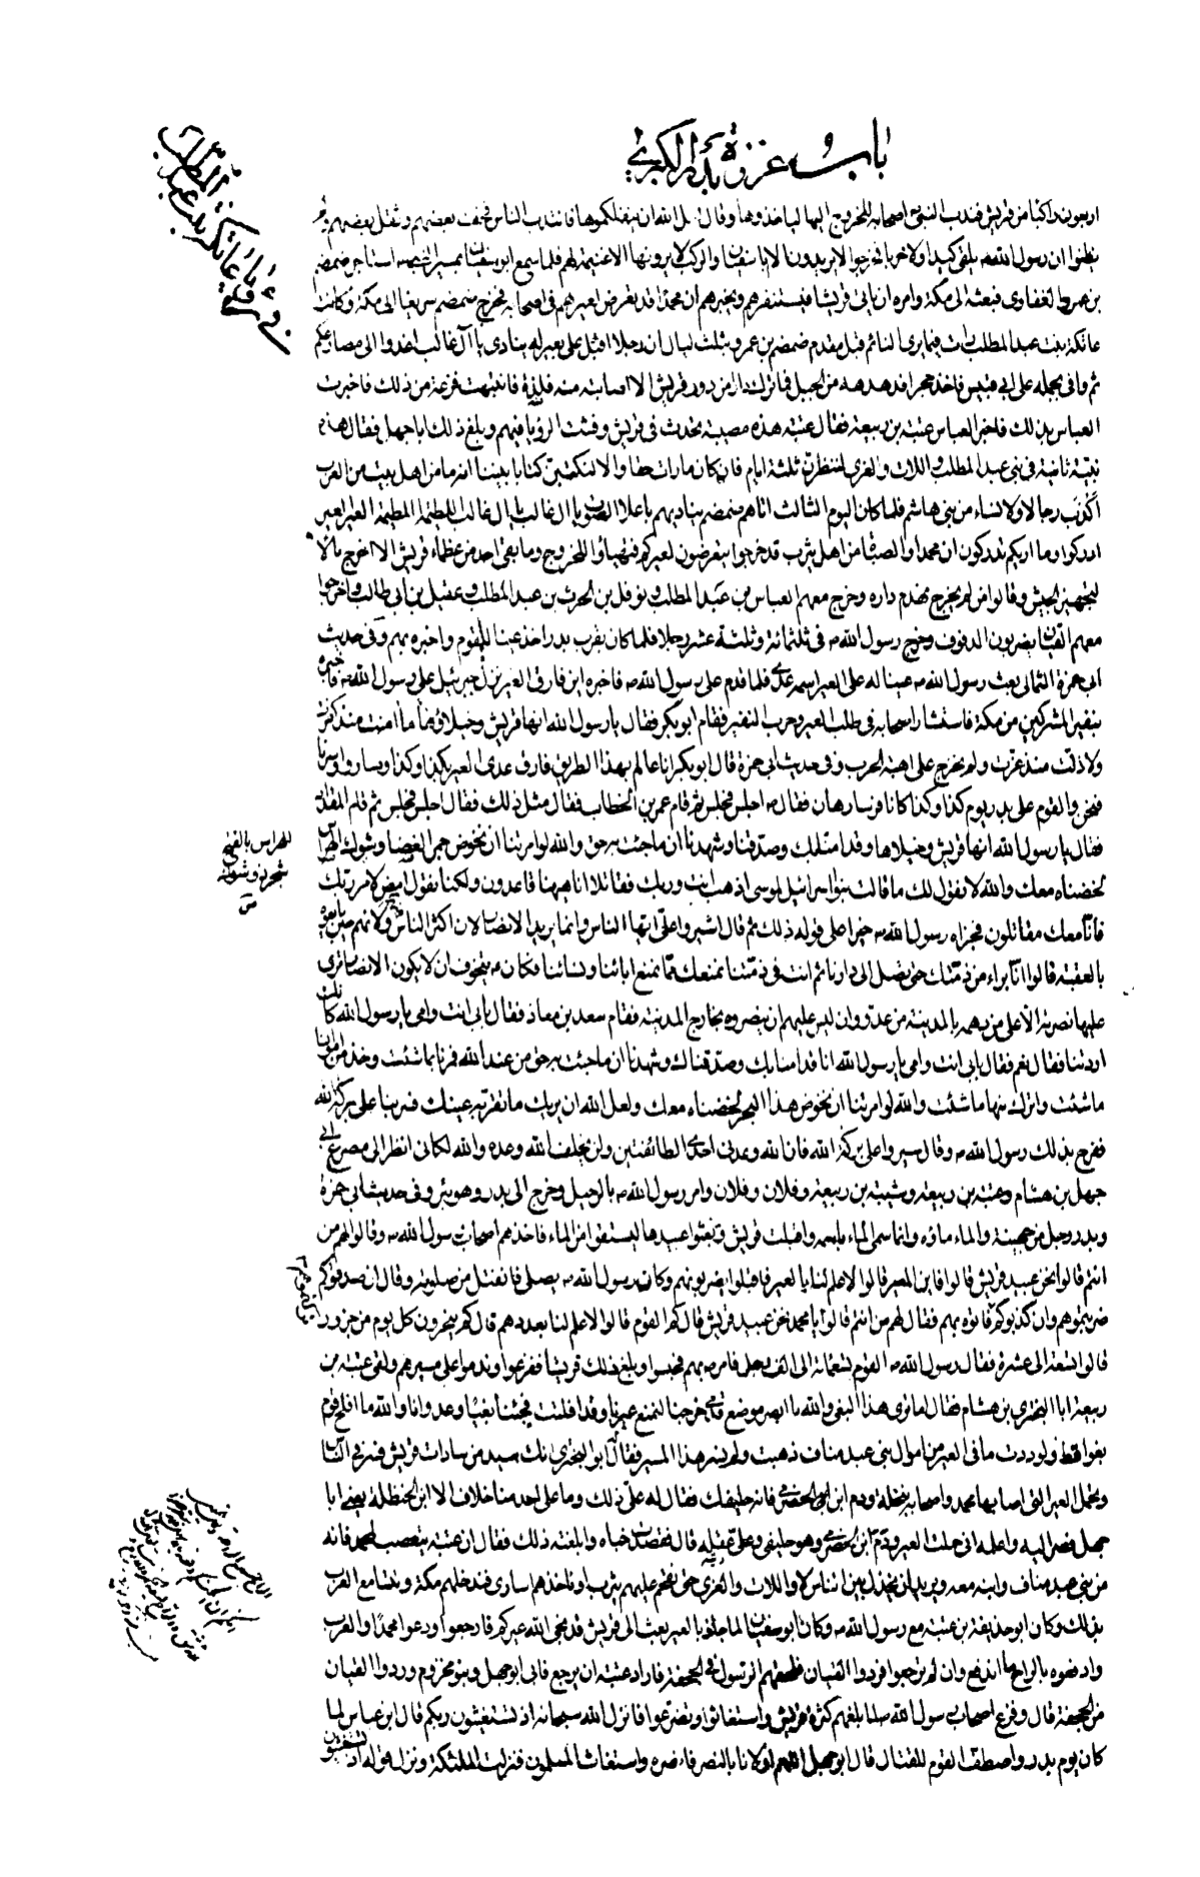 باب غزوة بدر الكبرى
في رؤيا عاتكة بنت عبد المطلب
اربعون راكبا من قريش فندب النبي اصحابه للخروج اليها ليأخذوها وقال لعل الله ان ينفلكموها فانتدب الناس فخف بعضهم وثقل بعضهم ولم
يظنوا ان رسول الله ص يلقى كيدا ولا حربا فخرجوا لا يريدون الا ابا سفيان والركب لا يرونها الا غنيمة لهم فلما سمع ابو سفيان بمسير النبي ص استاجر ضمضم
بن عمرو الغفاري فبعثه الى مكة وامره ان ياتي قريشا فيستنفرهم ويخبرهم ان محمدا قد تعرض لعيرهم في اصحابه فخرج ضمضم سريعا الى مكة وكانت
عاتكة بنت عبد المطلب رات فيما يرى النائم قبل مقدم ضمضم بن عمرو بثلث ليال ان رجلا اقبل على بعير له ينادي يا آل غالب اغدوا الى مصارعكم
ثم وافى بجمله على ابي قبيس فاخذ حجرا فدهدهه من الجبل فما ترك دارا من دور قريش الا اصابته منه فلذة فانتبهت فزعة من ذلك فاخبرت
العباس بذلك فاخبر العباس عتبة بن ربيعة فقال عتبة هذه مصيبة تحدث في قريش وفشت الرؤيا فيهم وبلغ ذلك ابا جهل فقال هذه
نبية ثانية في بني عبد المطلب واللات والعزى لننتظرن ثلثة ايام فان كان ما رات حقا والا لنكتبن كتابا بيننا انه ما من اهل بيت من العرب
اكذب رجالا ولا نساء من بني هاشم فلما كان اليوم الثالث اتاهم ضمضم يناديهم باعلا الصوت يا ال غالب يا ال غالب اللطيمة اللطيمة العير العير
ادركوا وما اريكم تدركون ان محمدا والصباة من اهل يثرب قد خرجوا يتعرضون لعيركم فتهياؤا للخروج وما بقي احد من عظماء قريش الا اخرج مالا
لتجهيز الجيش وقالوا من لم يخرج نهدم داره وخرج معهم العباس بن عبد المطلب ونوفل بن الحرث بن عبد المطلب وعقيل بن ابي طالب واخرجوا
معهم القيان يضربون الدفوف وخرج رسول الله ص في ثلثمائة وثلثة عشر رجلا فلما كان بقرب بدر اخذ عينا للقوم واخبره بهم وفي حديث
ابي حمزة الثمالي بعث رسول الله ص عينا له على العير اسمه عدي فلما قدم على رسول الله ص فاخبره اين فارق العير نزل جبرئيل على رسول الله ص فاخبره
بنفير المشركين من مكة فاستشار اصحابه في طلب العير وحرب النفير فقام ابو بكر فقال يا رسول الله انها قريش وخيلاؤها ما امنت منذ كفرت
ولا ذلت منذ عزت ولم تخرج على اهبة الحرب وفي حديث ابي حمزة قال ابو بكر انا عالم بهذا الطريق فارق عدي العير بكذا وكذا وساروا وسرنا
فنحن والقوم على بدر يوم كذا وكذا كانا فرسا رهان فقال ص اجلس فجلس ثم قام عمر بن الخطاب فقال مثل ذلك فقال اجلس فجلس ثم قام المقداد
فقال يا رسول الله انها قريش وخيلاها وقد امنا بك وصدقنا وشهدنا ان ما جئت به حق والله لو امرتنا ان نخوض جمر الغضا وشوك الهراس
لخضناه معك والله لا نقول لك ما قالت بنو اسرائيل لموسى اذهب انت وربك فقاتلا انا ههنا قاعدون ولكنا نقول امض لامر ربك
فانا معك مقاتلون فجزاه رسول الله ص خيرا على قوله ذلك ثم قال اشيروا علي ايها الناس وانما يريد الانصار لان اكثر الناس منهم ولانهم حين بايعوه
بالعقبة قالوا انا براء من ذمتك حتى تصل الى دارنا ثم انت في ذمتنا نمنعك مما نمنع ابائنا ونسائنا فكان ص يتخوف ان لا يكون الانصار ترى
عليها نصرته الا على من دهمه بالمدينة من عدو وان ليس عليهم ان ينصروه بخارج المدينة فقام سعد بن معاذ فقال بابي انت وامي يا رسول الله كانك
اردتنا فقال نعم فقال بابي انت وامي يا رسول الله انا قد امنا بك وصدقناك وشهدنا ان ما جئت به حق من عند الله فمرنا بما شئت وخذ من اموالنا
ما شئت واترك منها ما شئت والله لو امرتنا ان نخوض هذا البحر لخضناه معك ولعل الله ان يريك ما تقر به عينك فسر بنا على بركة الله
ففرح بذلك رسول الله ص وقال سيروا على بركة الله فان الله وعدني احدى الطائفتين ولن يخلف الله وعده والله لكاني انظر الى مصرع ابي
جهل بن هشام وعتبة بن ربيعة وشيبة بن ربيعة وفلان وفلان وامر رسول الله ص بالرحيل وخرج الى بدر وهو بئر وفي حديث ابي حمزة
وبدر رجل من جهينة والماء ماؤه وانما سمى الماء باسمه واقبلت قريش وبعثوا عبيدها ليستقوا من الماء فاخذهم اصحاب رسول الله ص وقالوا لهم من
انتم قالوا نحن عبيد قريش قالوا فاين العير قالوا لا علم لنا بالعير فاقبلوا يضربونهم وكان رسول الله ص يصلي فانفتل من صلوته وقال ان صدقوكم
ضربتموهم وان كذبوكم تركتموهم فاتوه بهم فقال لهم من انتم قالوا يا محمد نحن عبيد قريش قال كم القوم قالوا لا علم لنا بعددهم قال كم ينحرون كل يوم من جزور
قالوا تسعة الى عشرة فقال رسول الله ص القوم تسعمائة الى الف رجل فامر ص بهم فحبسوا وبلغ ذلك قريشا ففزعوا وندموا على مسيرهم ولقى عتبة بن
ربيعة ابا البختري بن هشام فقال اما ترى هذا البغي والله ما ابصر موضع قدمي خرجنا لنمنع عيرنا وقد افلتت فجئنا بغيا وعدوانا والله ما افلح قوم
بغوا قط ولوددت ما في العير من اموال بني عبد مناف ذهبت ولم نسر هذا المسير فقال ابو البختري انك سيد من سادات قريش فسر في الناس
وتحمل العير التي اصابها محمد واصحابه بنخلة ودم ابن الحضرمي فانه حليفك فقال له علي ذلك وما على احد منا خلاف الا ابن الحنظلية يعني ابا
جهل فصر اليه واعلمه اني حملت العير ودم ابن الحضرمي وهو حليفي وعلي عقله قال فقصدت خباه وابلغته ذلك فقال ان عتبة يتعصب لمحمد فانه
من بني عبد مناف وابنه معه ويريد ان يخذل بين الناس لا واللات والعزى حتى نقحم عليهم يثرب او ناخذهم اسارى فندخلهم مكة وتتسامع العرب
بذلك وكان ابو حذيفة بن عتبة مع رسول الله ص وكان ابو سفيان لما جاز بالعير بعث الى قريش قد نجى الله عيركم فارجعوا ودعوا محمدا والعرب
وادفعوه بالراح ما اندفع وان لم ترجعوا فردوا القيان فلحقهم الرسول في الجحفة فاراد عتبة ان يرجع فابى ابو جهل وبنو مخزوم وردوا القيان
من الجحفة قال وفزع اصحاب رسول الله ص لما بلغهم كثرة قريش واستغاثوا وتضرعوا فانزل الله سبحانه اذ تستغيثون ربكم قال ابن عباس لما
كان يوم بدر واصطف القوم للقتال قال ابو جهل اللهم اولانا بالنصر فانصره واستغاث المسلمون فنزلت الملئكة ونزل قوله اذ تستغيثون
الهراس بالفتح
شجر ذو شوك
ص